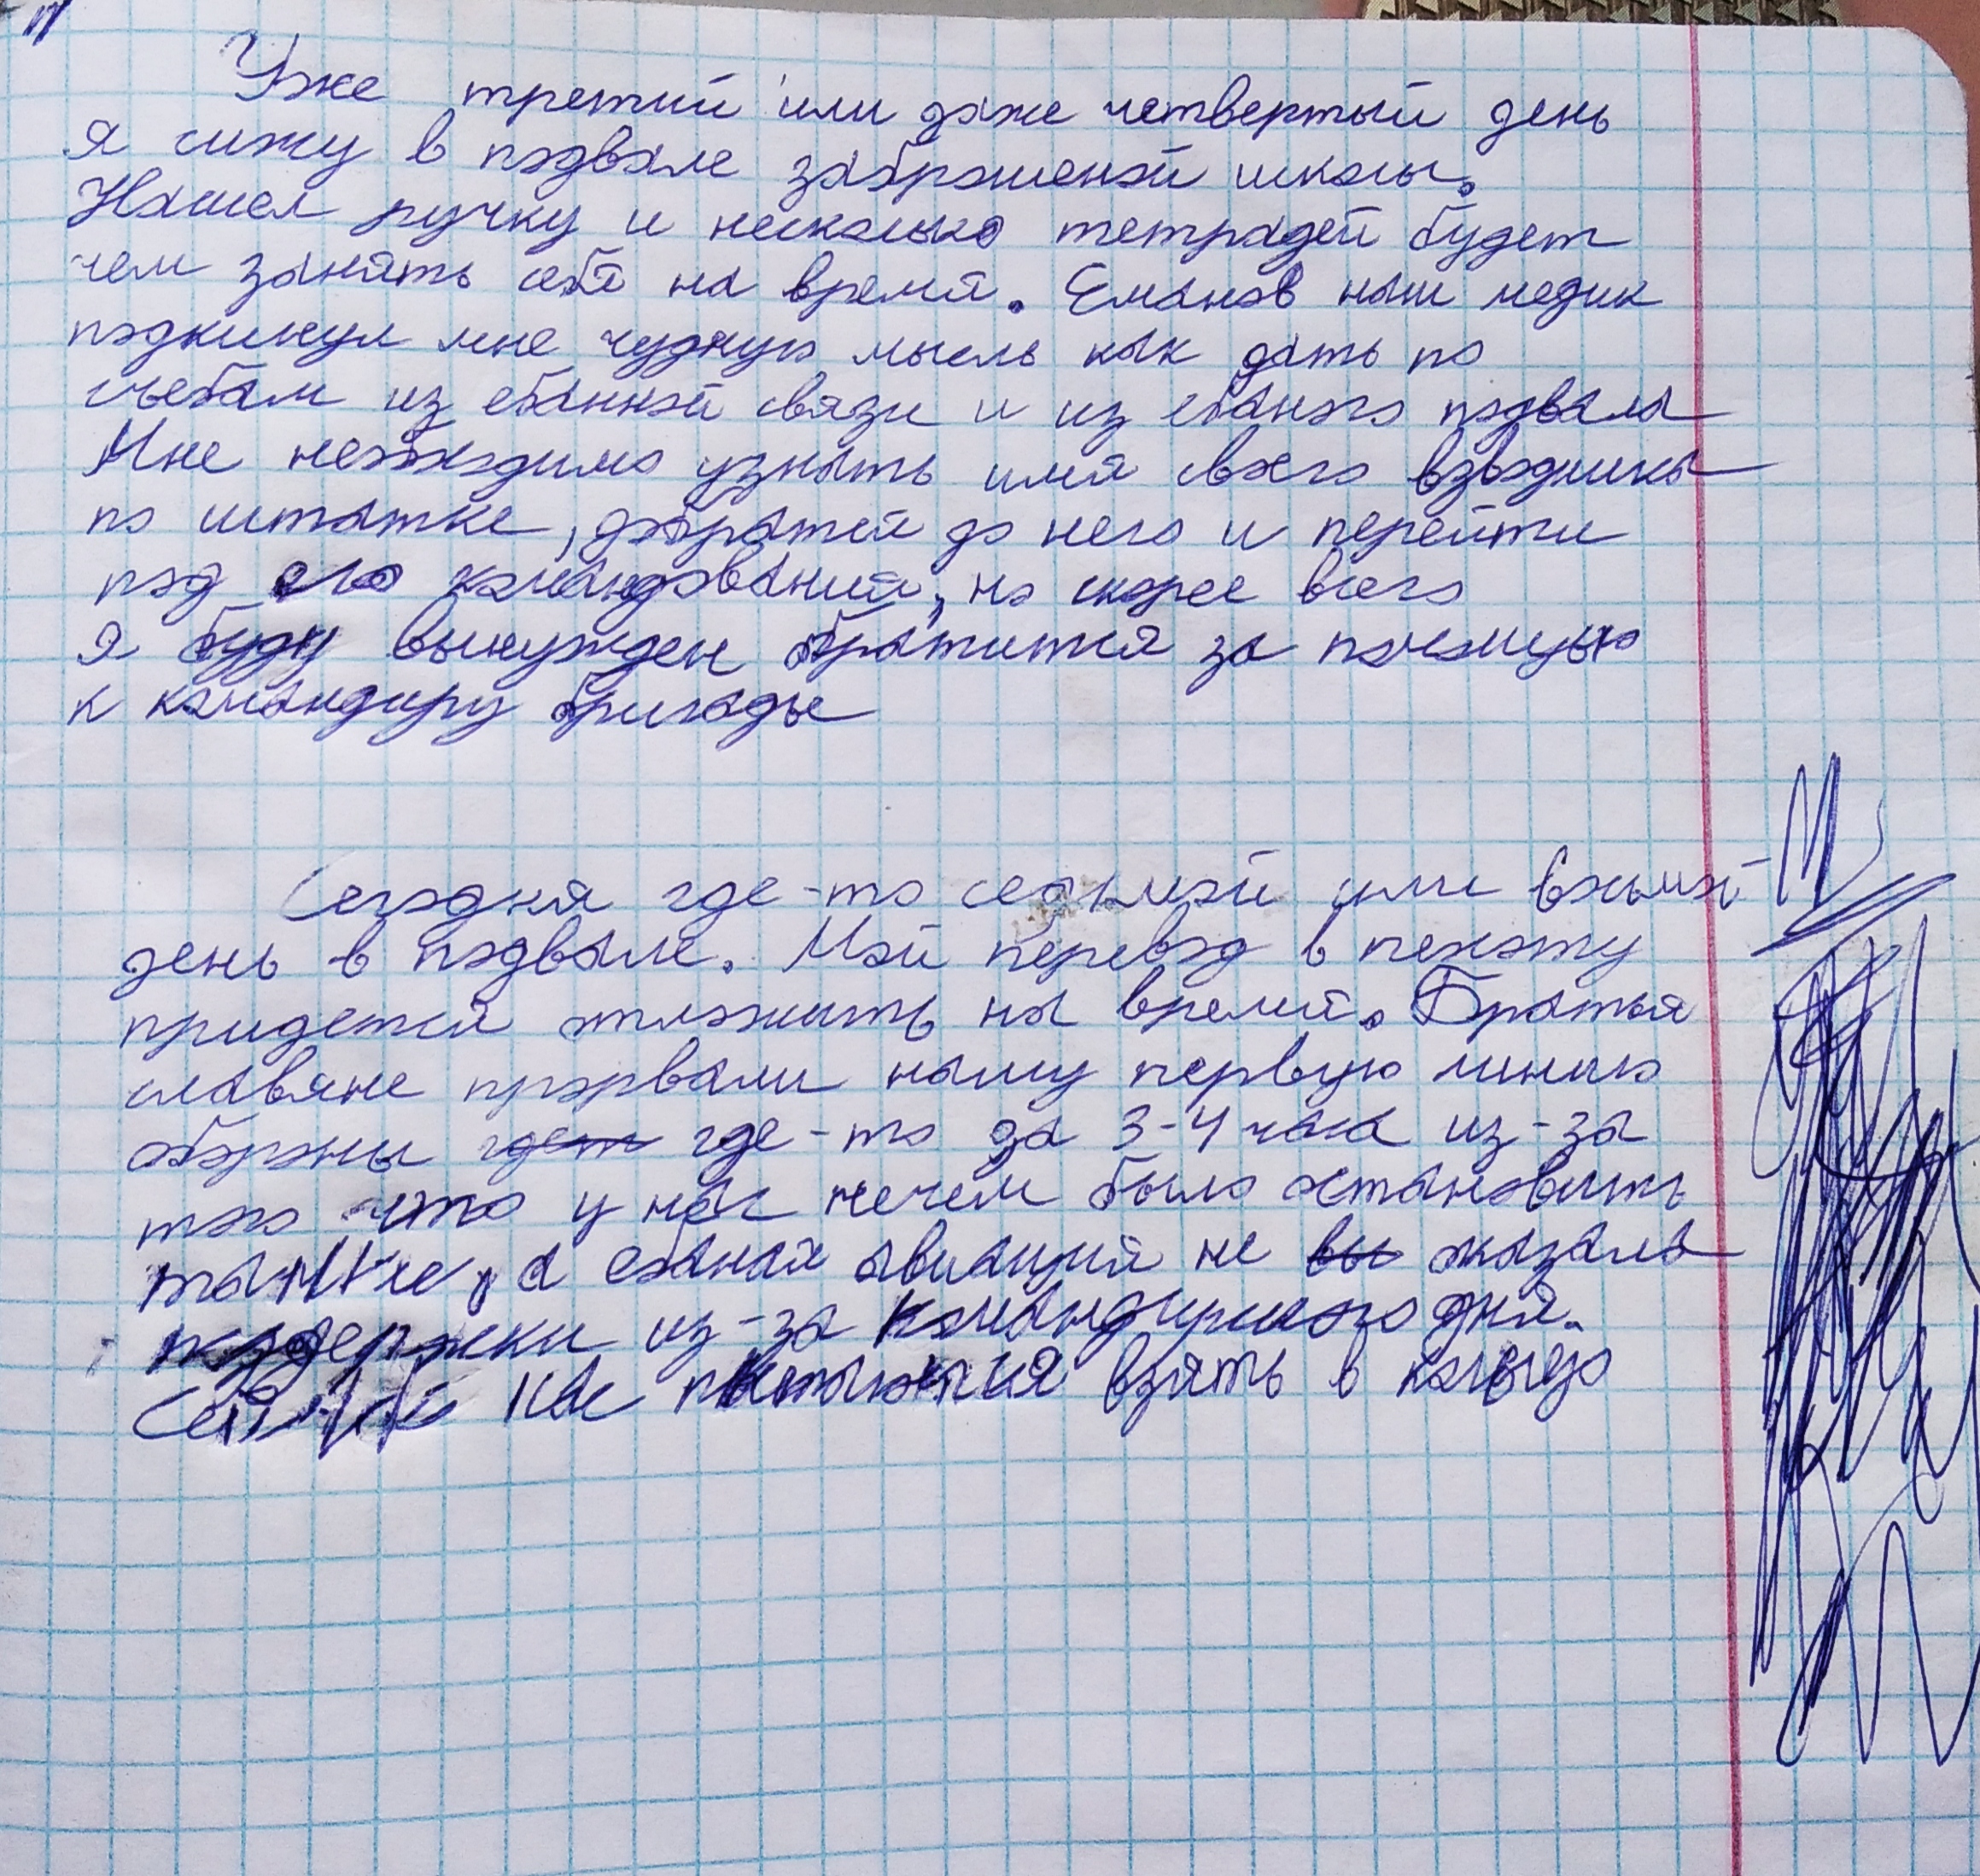 Уже третий или даже четвертый день
я сижу в подвале заброшеной школы.
Нашел ручку и несколько тетрадей будет
чем занять себя на время. Еманов наш медик
подкинул мне чудную мысль как дать по
съебам из ебанной связи и из ебаного подвала
Мне необходимо узнать имя своего взводника
по штатке, добратся до него и перейти
под его командования, но скорее всего
я буду вынужден братится за помощью
к командиру бригады
Сегодня где-то седьмой или восьмой
день в подвале. Мой перевод в пехоту
придется отложить на время. Братья
славяне прорвали нашу первую линию
обороны где-то за 3-4 часа из-за
того что у нас нечем было остановить
танке, а ебаная авиация не вы оказала
поддержки из-за командирского дня.
нас взять в кольцо